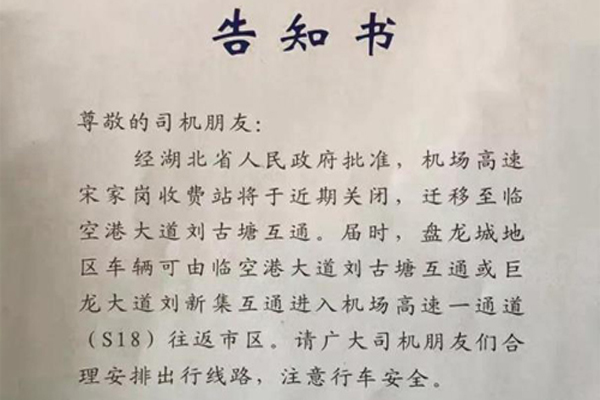 告知书
尊敬的司机朋友：
经湖北省人民政府批准，机场高速
宋家岗收费站将于近期关闭，迁移至临
空港大道刘古塘互通。届时，盘龙城地
区车辆可由临空港大道刘古塘互通或巨
龙大道刘新集互通进入机场高速一通道
（S18）往返市区。请广大司机朋友们合
理安排出行线路，注意行车安全。